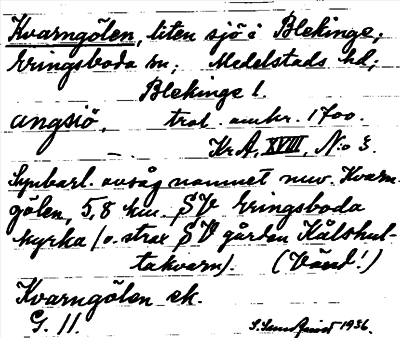 Kvarngölen, liten sjö i Blekinge;
Eringsboda sn; Medelstads hd;
Blekinge l.
angsiö, trol. omkr. 1700.
Kr A, XVIII, N:o 3.
Synbarl. avsåg namnet nuv. Kvarn-
gölen, 5,8 km. SV Eringsboda
kyrka (o. strax SV gården Kålshul-
takvarn). (Vänd!)
Kvarngölen ek.
G. 11. S. Sundquist 1936.